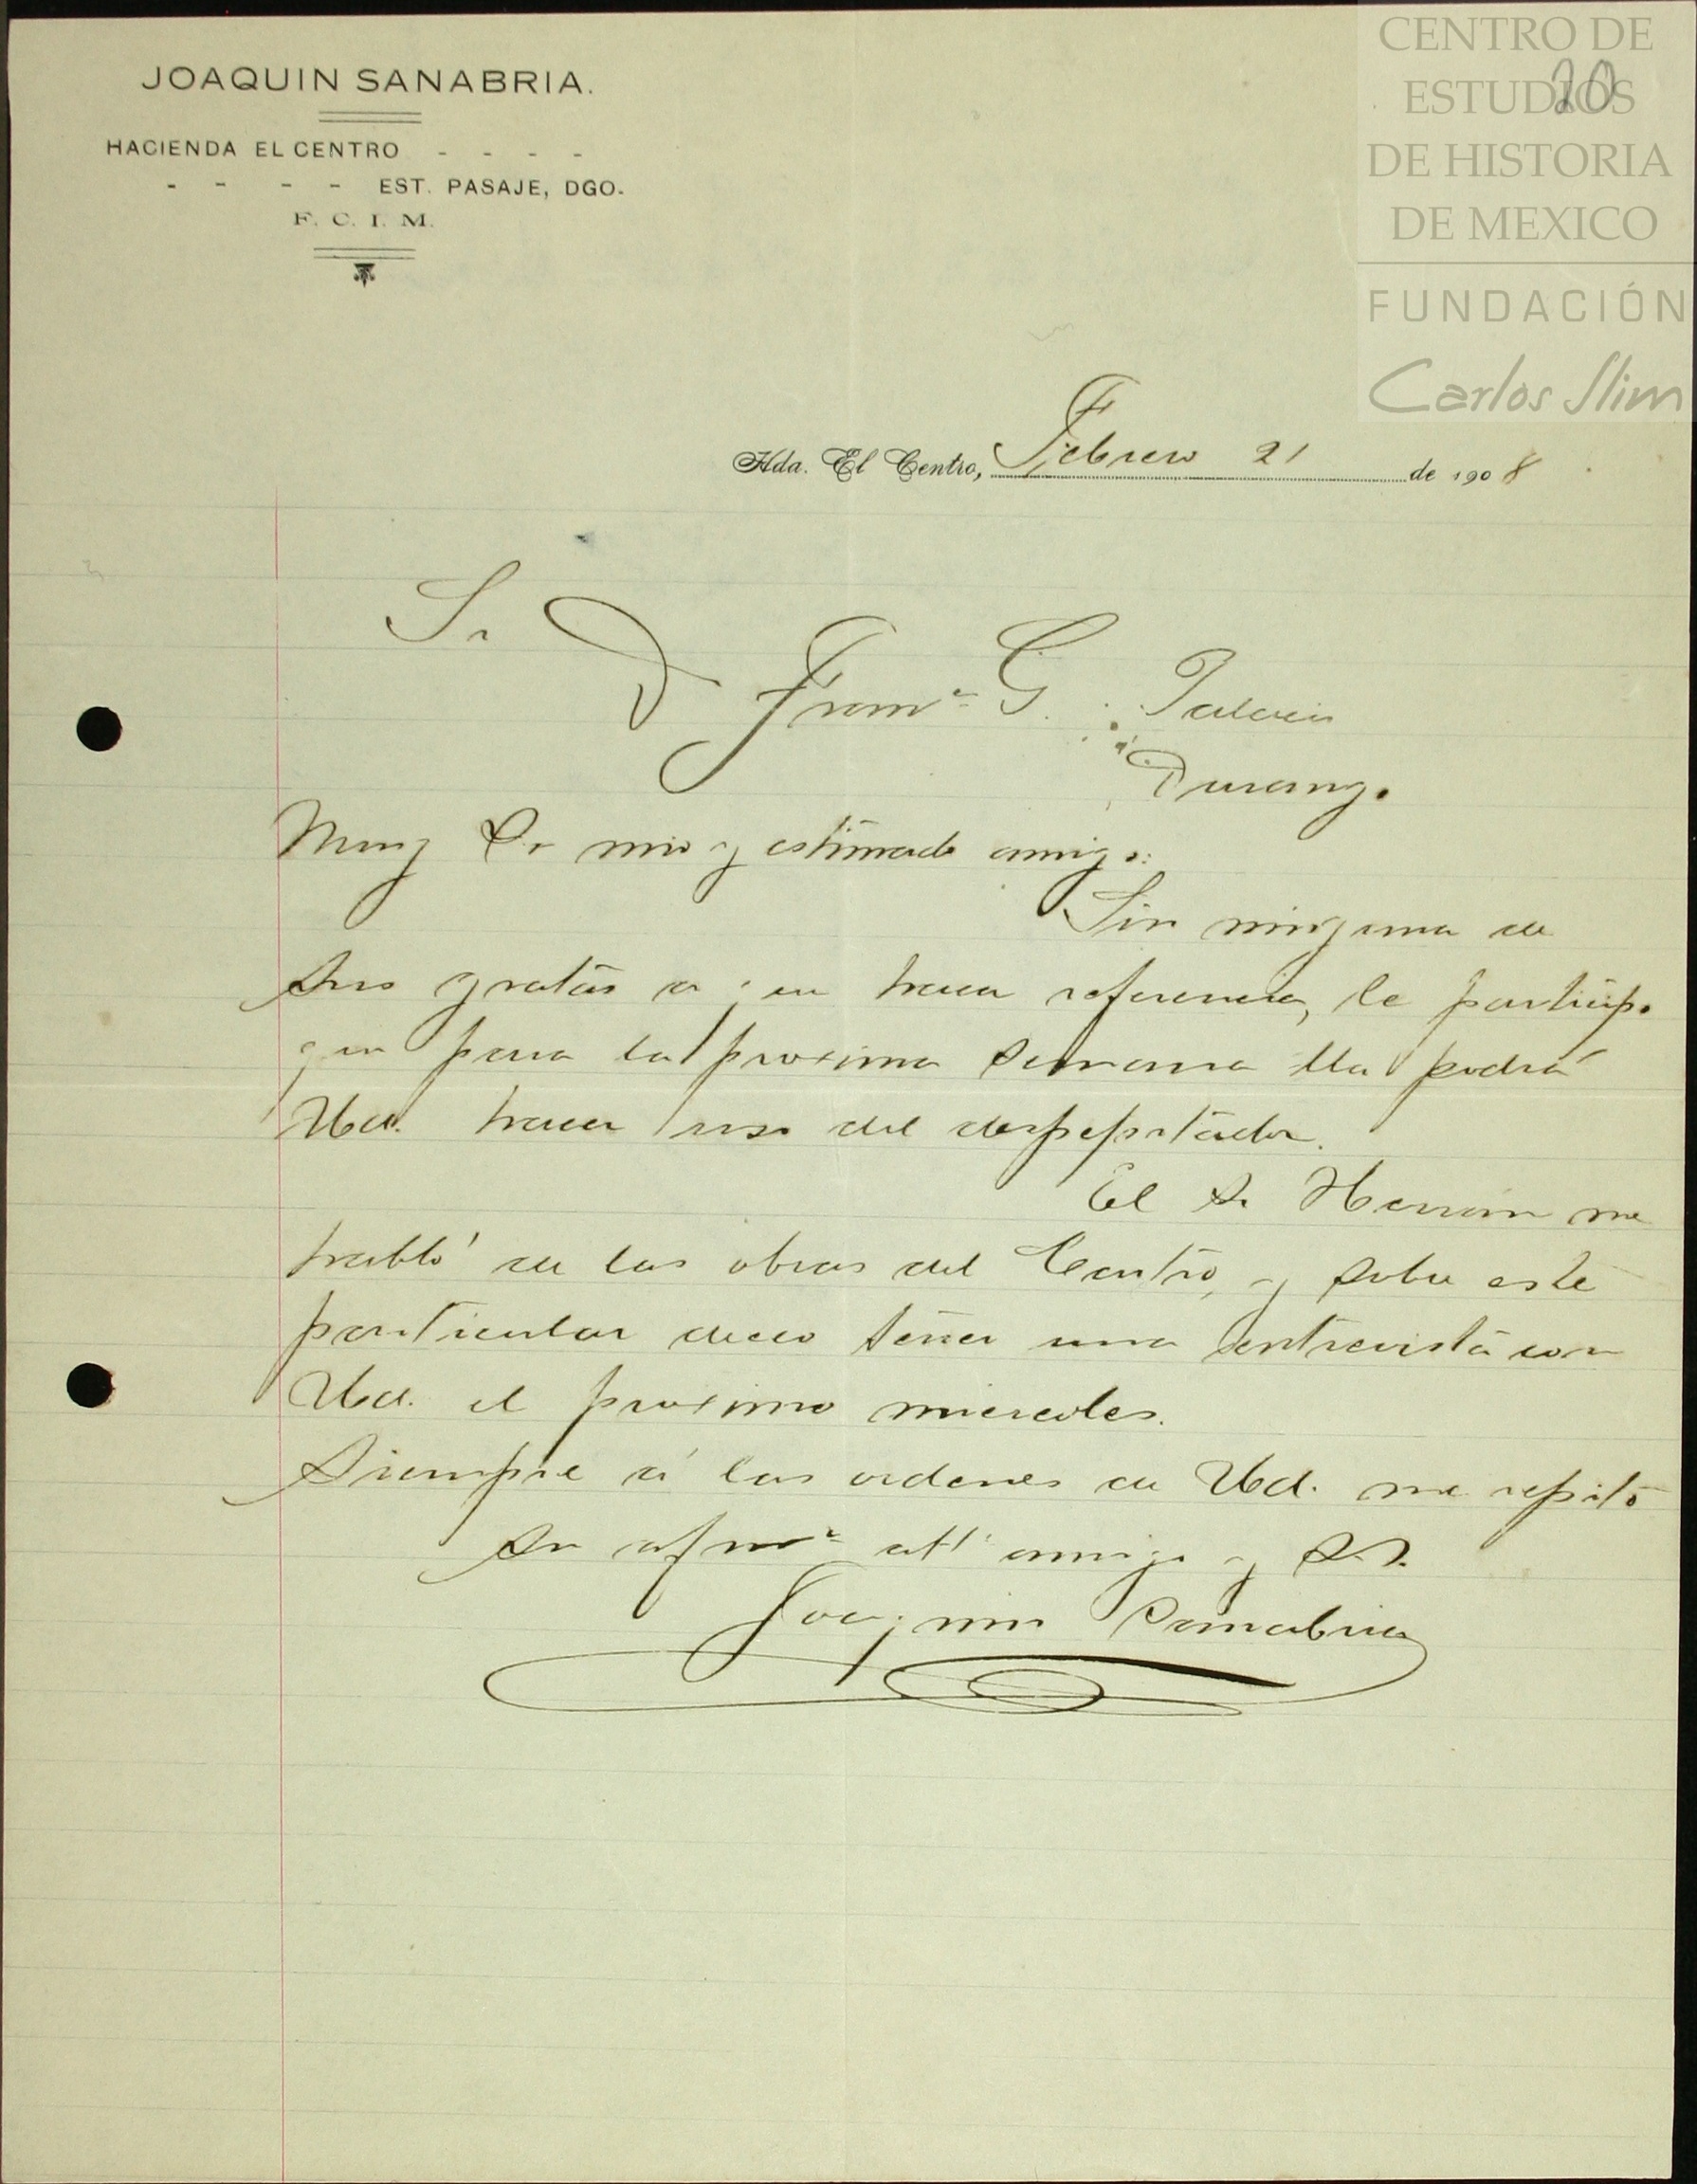 JOAQUIN SANABRIA.
HACIENDA EL CENTRO - - - -
- - - - EST. PASAJE, DGO.
F. C. I. M.
CENTRO DE
ESTUDIOS
DE HISTORIA
DE MEXICO
FUNDACIÓN
Carlos Slim
20
Hda. El Centro, Febrero 21 de 1908
Sr
D Franco G. Palacio
Durango
Muy Sr mio y estimado amigo:
Sin ninguna de
sus gratas a que hacer referencia, le participo
que para la proxima semana lla podrá
Ud. hacer uso del despepitador.
El Sr Herran me
habló de las obras del Centro, y sobre este
particular deseo tener una entrevista con
Ud. el proximo miercoles.
Siempre á las ordenes de Ud. me repito
su afmo att amigo y S.S.
Joaquin Sanabria